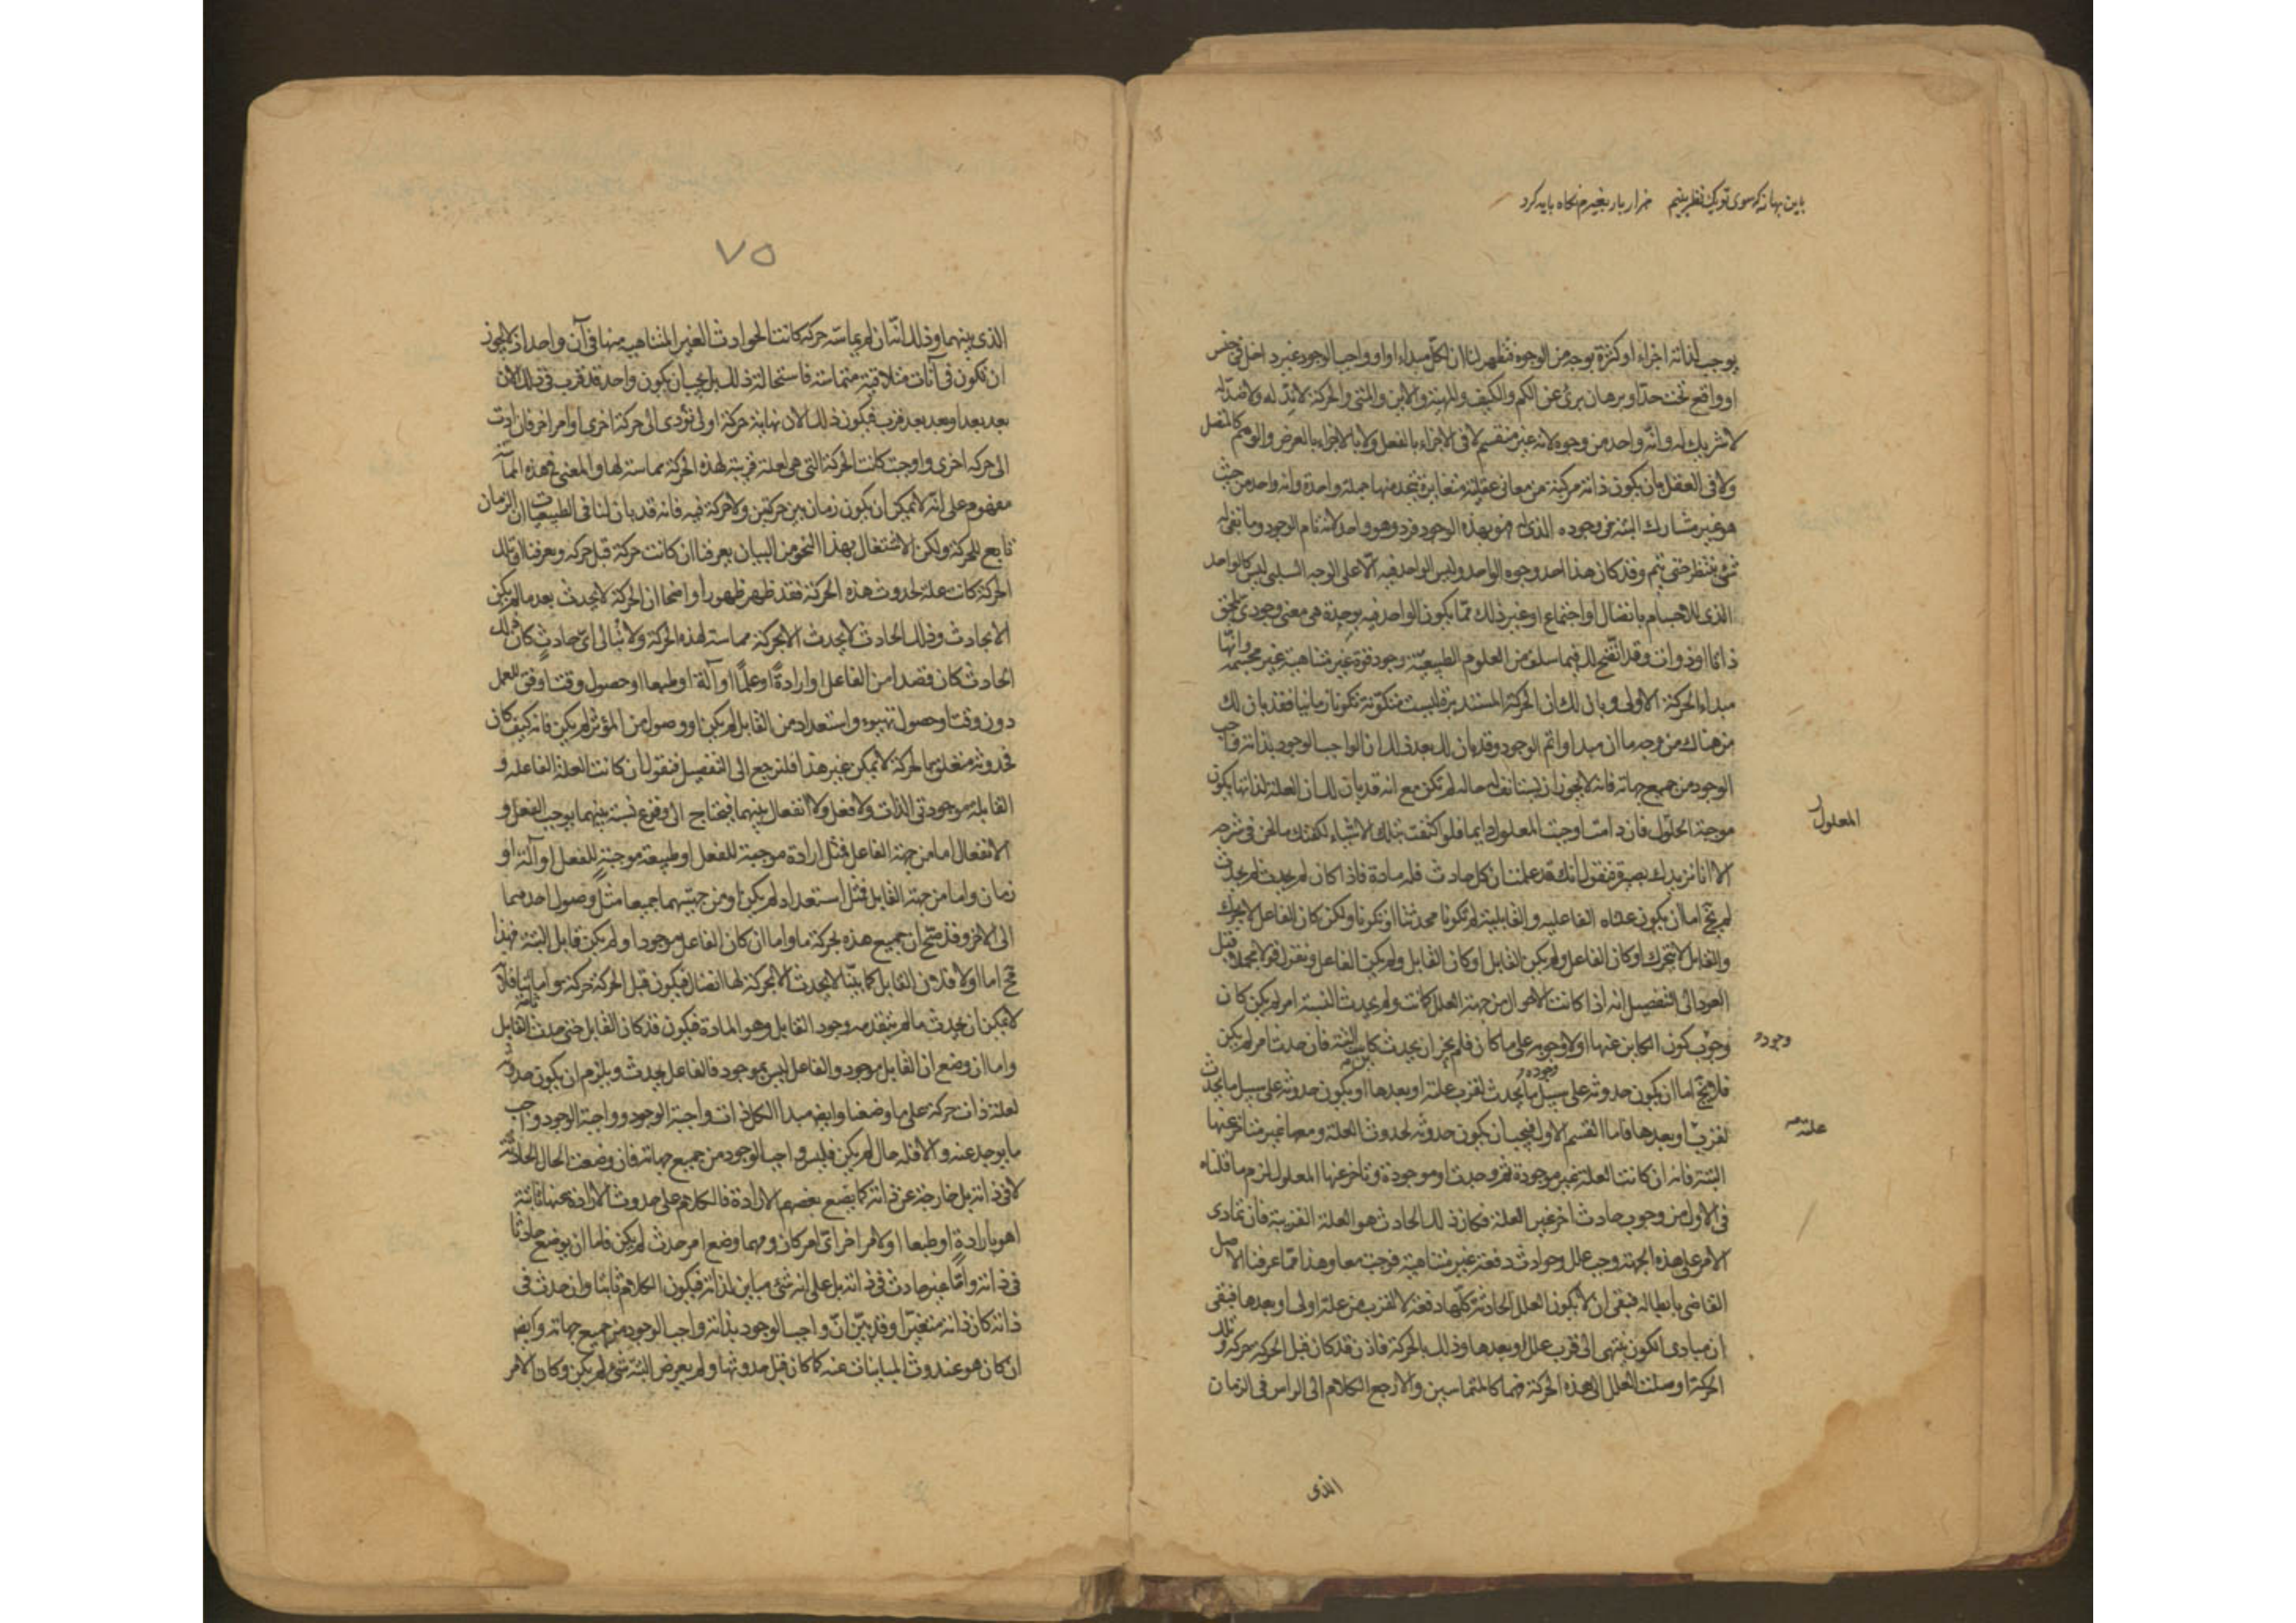 باین بهانه که سوی تو یک نظر بینم هزار بار بغیرم نگاه باید کرد
یوجب لذاته اجزاء او کثرة بوجه من الوجوه فنظهر لنا ان للکل مبداء اوا وواجب الوجود غیر داخل فی جنس
او واقع تحت حد او برهان بری عن الکم والکیف والمهیة والاین والمتی والحرکة لا ند له ولا ضد له
لا شریک له وانه واحد من وجوه لانه غیر منقسم لا فی الاجزاء بالفعل ولا بالاجزاء بالعرض والوهم کالمتصل
ولا فی العقل بان یکون ذاته مرکبة من معانی عقلیة متغایرة یتحد منها جملة واحدة وانه واحد من حیث
هو غیر مشارک البتة فی وجوده الذی له فهو بهذه الوجود فرد وهو واحد لانه تام الوجود وما بقی له
شئ ینتظر حتی یتم وقد کان هذا احد وجوه الواحد ولیس الواحد فیه الا علی الوجه السلبی لیس کالواحد
الذی للاجسام باتصال او اجتماع او غیر ذلک مما یکون الواحد فیه بوحدة هی معنی وجودی یلحق
ذاتا او ذوات وقد اتضح لک فیما سلف من العلوم الطبیعیة وجود قوة غیر متناهیة غیر مجسمة وانها
مبداء الحرکة الاولی وبان لک ان الحرکة المستدیرة لیست متکونة تکونا زمانیا فقد بان لک
من هناک من وجه ما ان مبداوا تم الوجود وقد بان لک بعد ذلک ان الواجب الوجود بذاته واجب
الوجود من جمیع جهاته فانه لا یجوز ان یستانف له حالة لم تکن مع انه قد بان لک ان العلة لذاتها یکون
موجبة الحلول فان دامت اوجبت المعلول دایما فلو اکتفیت بتلک الاشیاء لکفتک ما نحن فی شرحه
المعلول
الا انا نزیدک بصیرة فنقول انک قد علمت ان کل حادث فله مادة فاذا کان لم یحدث ثم حدث
لم یخ اما ان یکون علتاه الفاعلیة والقابلیة لم تکونا فحدثتا او تکونا ولکن کان الفاعل لا یحرک
والقابل لا یتحرک او کان الفاعل ولم یکن القابل او کان القابل ولم یکن الفاعل ونقول قولا مجملا قبل
العود الی التفصیل انه اذا کانت الاحوال من جهة العلل کانت ولم یحدث البتة امر لم یکن کان
وجوب کون الکاین عنها اولا وجوبه علی ما کان فلم یجز ان یحدث کاین البتة فان حدث امر لم یکن
وجود
فلا یخ اما ان یکون حدوثه علی سبیل ما یحدث لقرب علته او بعدها او یکون حدوثه علی سبیل ما یحدث
لقرب او بعدها فاما القسم الاول فیجب ان یکون حدوثه لحدوث العلة ومعها غیر متاخر عنها
علته
البتة فانه ان کانت العلة غیر موجودة ثم وجدت او موجودة وتاخر عنها المعلول لزم ما قلناه
فی الاول من وجوب حادث اخر غیر العلة فکان ذلک الحادث هو العلة القریبة فان تمادی
الامر علی هذه الجهة وجب علل وحوادث دفعة غیر متناهیة فوجبت معا وهذا مما عرفنا الاصل
القاضی بابطاله فبقی ان لا یکون العلل الحادثة کلها دفعة لا لقرب من علة اولی او بعدها فبقی
ان مبادی الکون ینتهی الی قرب علل او بعدها وذلک بالحرکة فاذن قد کان قبل الحرکة حرکة وتلک
الحرکة اوصلت العلل الی هذه الحرکة فهما کالمتماسین والا رجع الکلام الی الراس فی الزمان
الذی
٧٥
الذی بینهما وذلک انه ان لم یماسه حرکة کانت الحوادث الغیر المتناهیة منها فی آن واحد اذ لا یجوز
ان تکون فی آنات متلاقیة متماسة فاستحالة ذلک بل یجب ان یکون واحد قد قرب فی ذلک الان
بعد بعد او بعد بعد قرب فیکون ذلک الان نهایة حرکة اولی تؤدی الی حرکة اخری او امر اخر فان ادت
الی حرکة اخری واوجبت کانت الحرکة التی هی لعلة قریبة لهذه الحرکة مماسة لها والمعنی فی هذه المماسة
مفهوم علی انه لا یمکن ان یکون زمان بین حرکتین ولا حرکة فیه فانه قد بان لنا فی الطبیعیات ان الزمان
تابع للحرکة ولکن الاشتغال بهذا النحو من البیان یعرفنا ان کانت حرکة قبل حرکة ویعرفنا ان تلک
الحرکة کانت علة لحدوث هذه الحرکة فقد ظهر ظهورا واضحا ان الحرکة لا یحدث بعد ما لم یکن
الا بحادث وذلک الحادث لا یحدث الا بحرکة مماسة لهذه الحرکة ولا نبالی ای حادث کان ذلک
الحادث کان قصدا من الفاعل او ارادة او علما او آلة او طبعا او حصول وقت اوفق للعمل
دون وقت او حصول تهیوء واستعداد من القابل لم یکن او وصول من المؤثر لم یکن فانه کیف کان
فحدوثه متعلق بالحرکة لا یمکن غیر هذا فلنرجع الی التفصیل فنقول ان کانت العلة الفاعلة و
القابلة موجودتی الذات ولا فعل ولا انفعال بینهما فیحتاج الی وقوع نسبة بینهما یوجب الفعل و
الانفعال اما من جهة الفاعل فمثل ارادة موجبة للفعل او طبیعة موجبة للفعل او آلة او
زمان واما من جهة القابل فمثل استعداد لم یکن او من جهتیهما جمیعا مثل وصول احدهما
الی الاخر وقد صح ان جمیع هذه بحرکة ما واما ان کان الفاعل موجودا ولم یکن قابل البتة فهذا
مح اما اولا فلان القابل کما بینا لا یحدث الا بحرکة لها اتصال فیکون قبل الحرکة حرکة واما ثانیا فلانه
لا یمکن ان یحدث ما لم یتقدمه وجود القابل وهو المادة فیکون قد کان القابل حتی حدث القابل
واما ان وضع ان القابل موجود والفاعل لیس بموجود فالفاعل یحدث ویلزم ان یکون حدوثه
لعلة ذات حرکة علی ما وضعنا وایضا مبدا الکل ذات واجبة الوجود وواجبة الوجود واجب
ما یوجد عنه والا فله حال لم یکن فلیس واجب الوجود من جمیع جهاته فان وضعت الحال الحادثة
لا فی ذاته بل خارجة عن ذاته کما یضع بعضهم الارادة فالکلام علی حدوث الارادة عنها ثابتة
اهو بارادة او طبعا او لامر اخر ای امر کان ومهما وضع امر حدث لم یکن فاما ان یوضع حادثا
فی ذاته واما غیر حادث فی ذاته بل علی انه شئ مباین لذاته فیکون الکلام ثابتا وان حدث فی
ذاته کان ذاته متغیرا وقد بین ان واجب الوجود بذاته واجب الوجود من جمیع جهاته وایضا
ان کان هو عند حدوث المباینات عنه کما کان قبل حدوثها ولم یعرض البتة شئ لم یکن وکان الامر